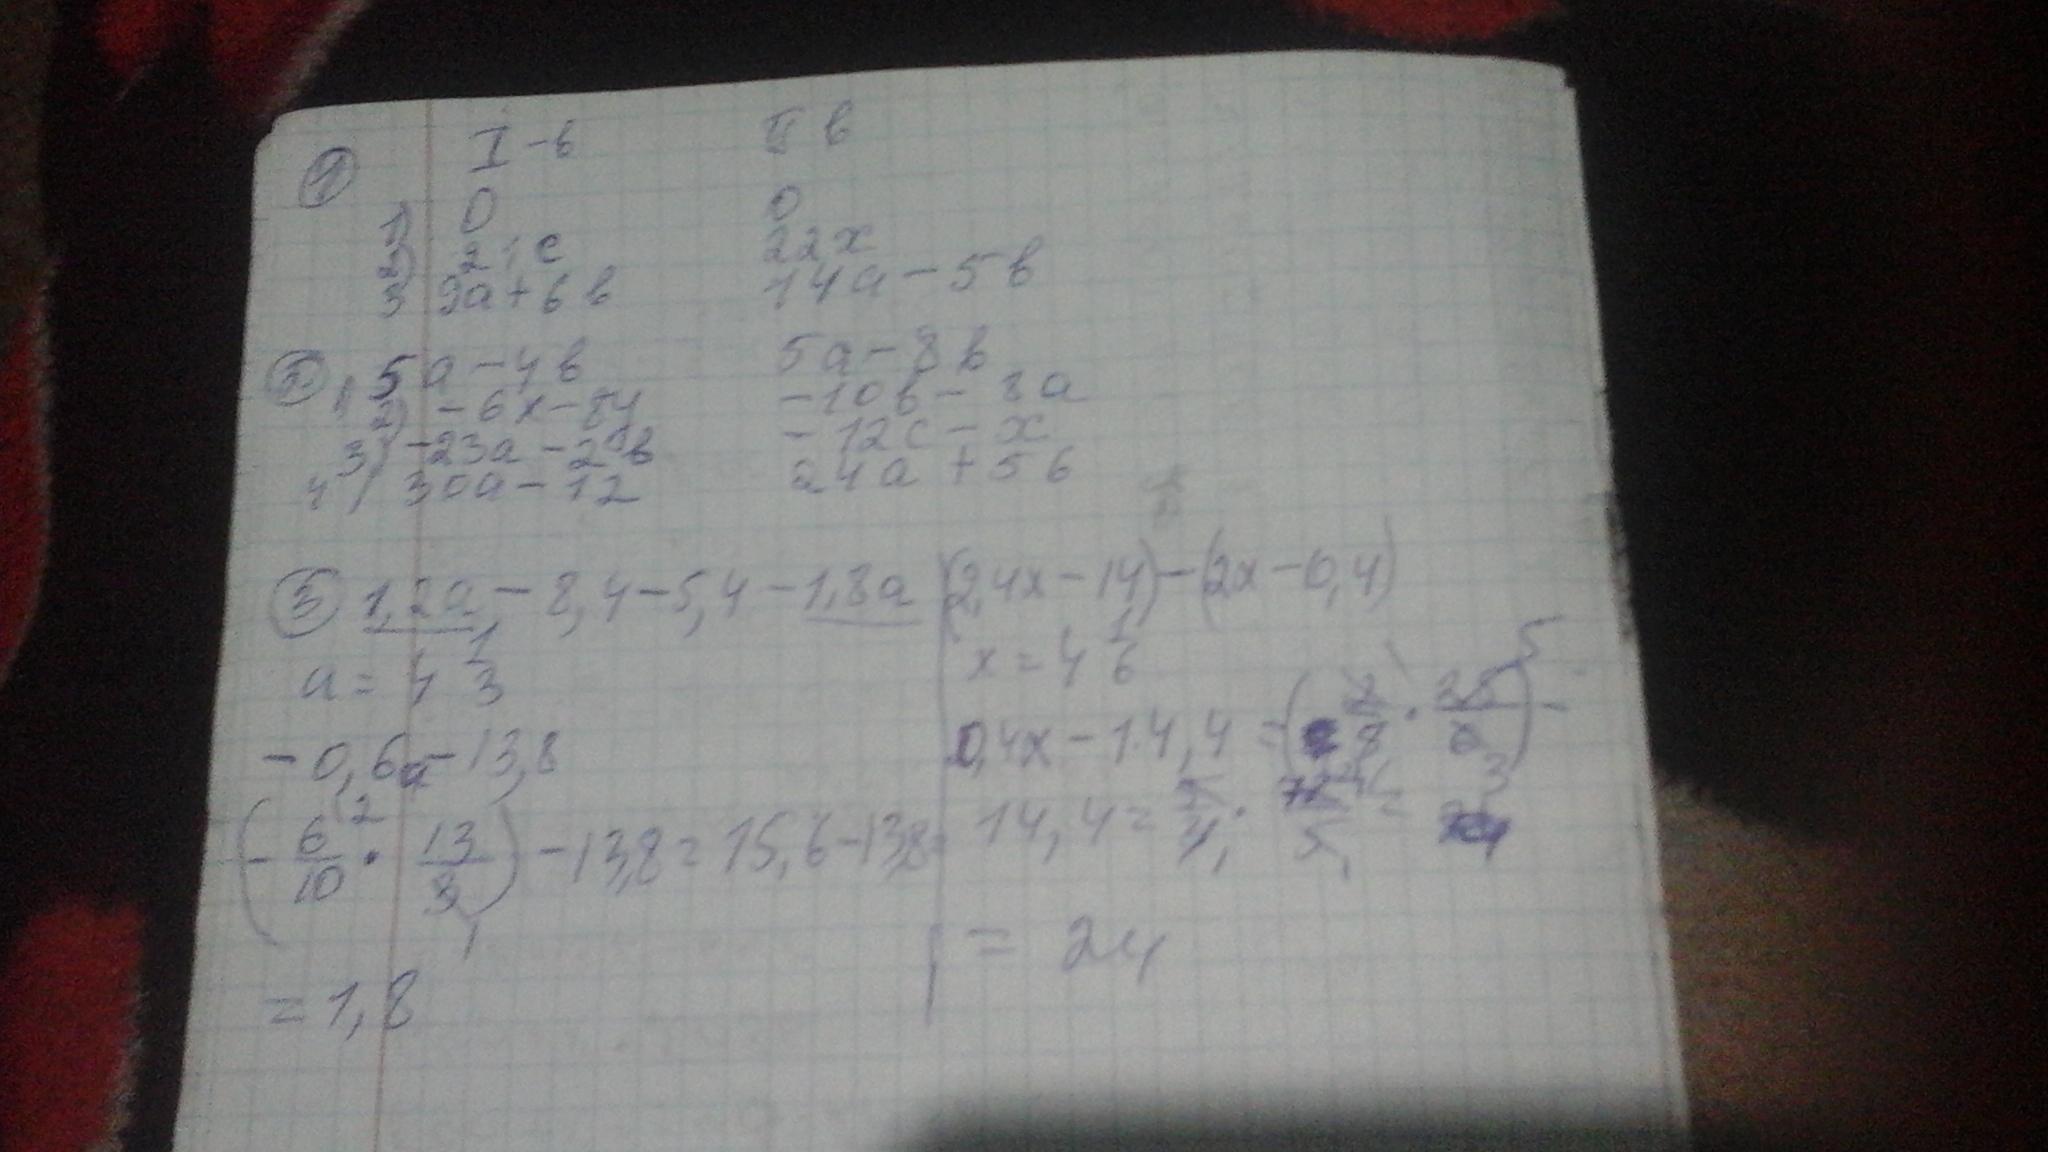 ① I-в II в
1) 0 0
2) 21c 22x
3 9a+6в 14a-5в
② 1) 5a-4в 5a-8в
2) -6x-8y -10в-8a
3) -23a-2 в -12c-x
4) 30a-12 24a+5в
③ 1,2a-8,4-5,4-1,8a (2,4x-14)-(2x-0,4)
a=4 1/3 x=4 1/6
-0,6a-13,8 0,4x-14,4=( 2/ · 25/6) 5 3 -
(- 6/10 · 13/3)-13,8=15,6-13,8= 14,4= · =
=1,8 = 24